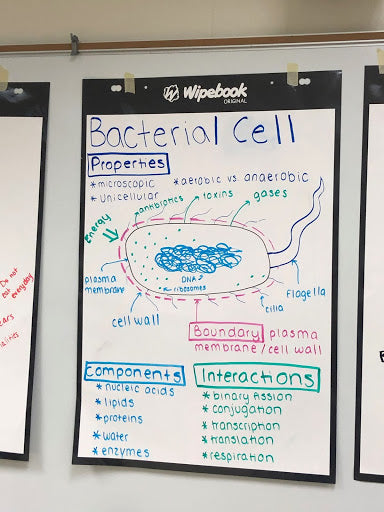 Wipebook
ORIGINAL
Bacterial Cell
Properties
* microscopic
* unicellular
* aerobic vs anaerobic
antibiotics
toxins
gases
Energy
DNA
* ribosomes
plasma
membrane
cell wall
cilia
Flagella
Boundary plasma
membrane/cell wall
Components
* nucleic acids
* lipids
* proteins
* water
* enzymes
Interactions
* binary fission
* conjugation
* transcription
* translation
* respiration
Do not
everyday